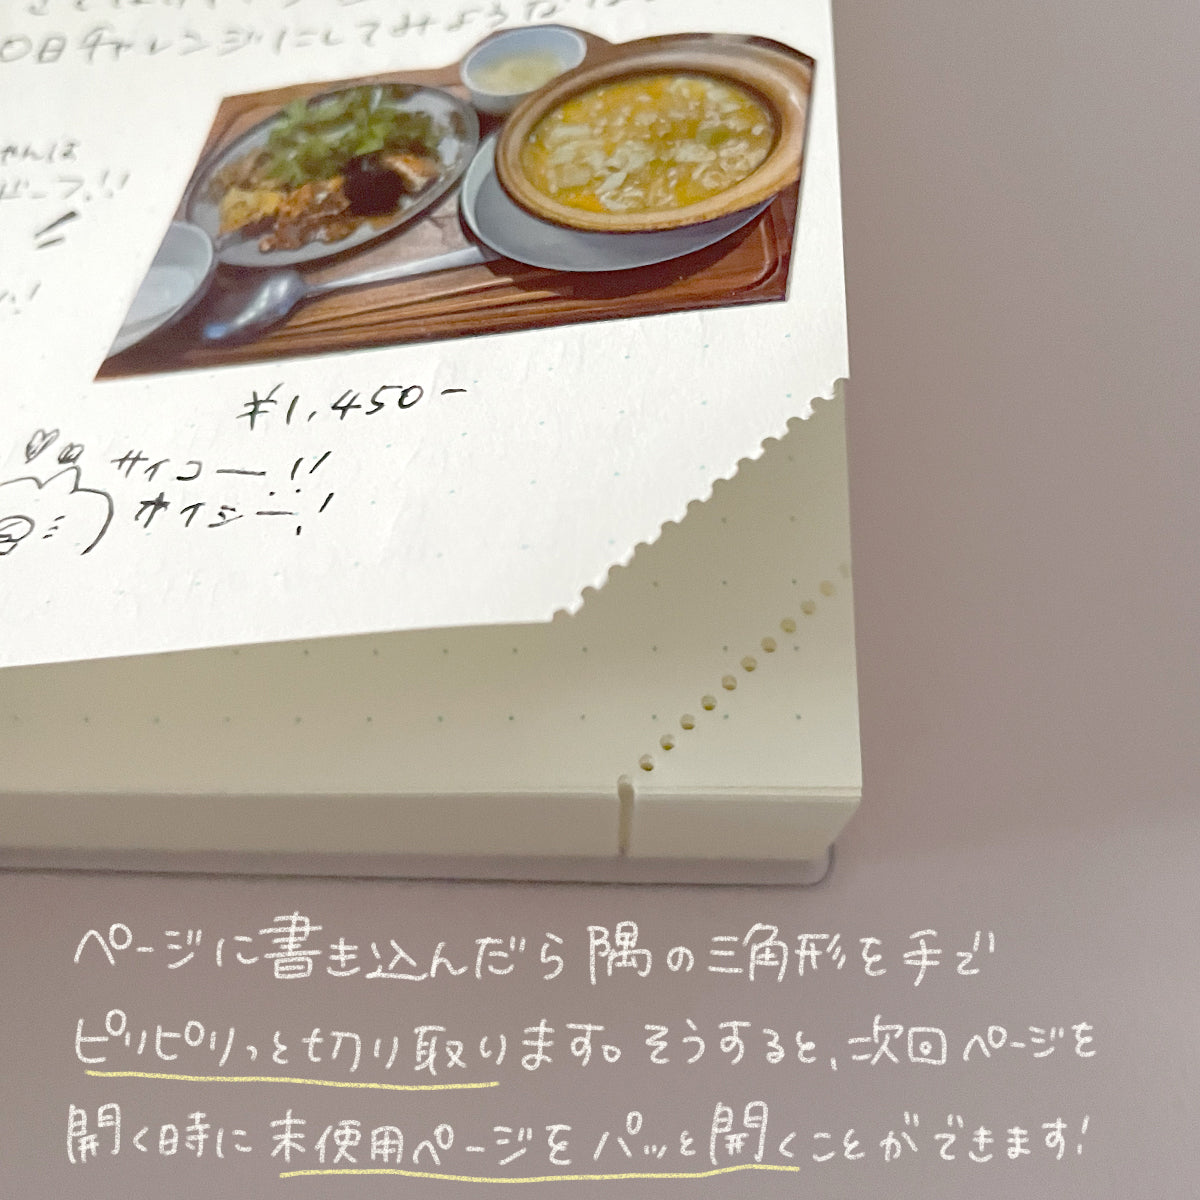 0日チャレンジにしてみようかな。
ちゃんは
ビーフ!!
¥1,450-
サイコー!!
オイシー!
ページに書き込んだら隅の三角形を手で
ピリピリっと切り取ります。そうすると、次回ページを
開く時に未使用ページをパッと開くことができます!